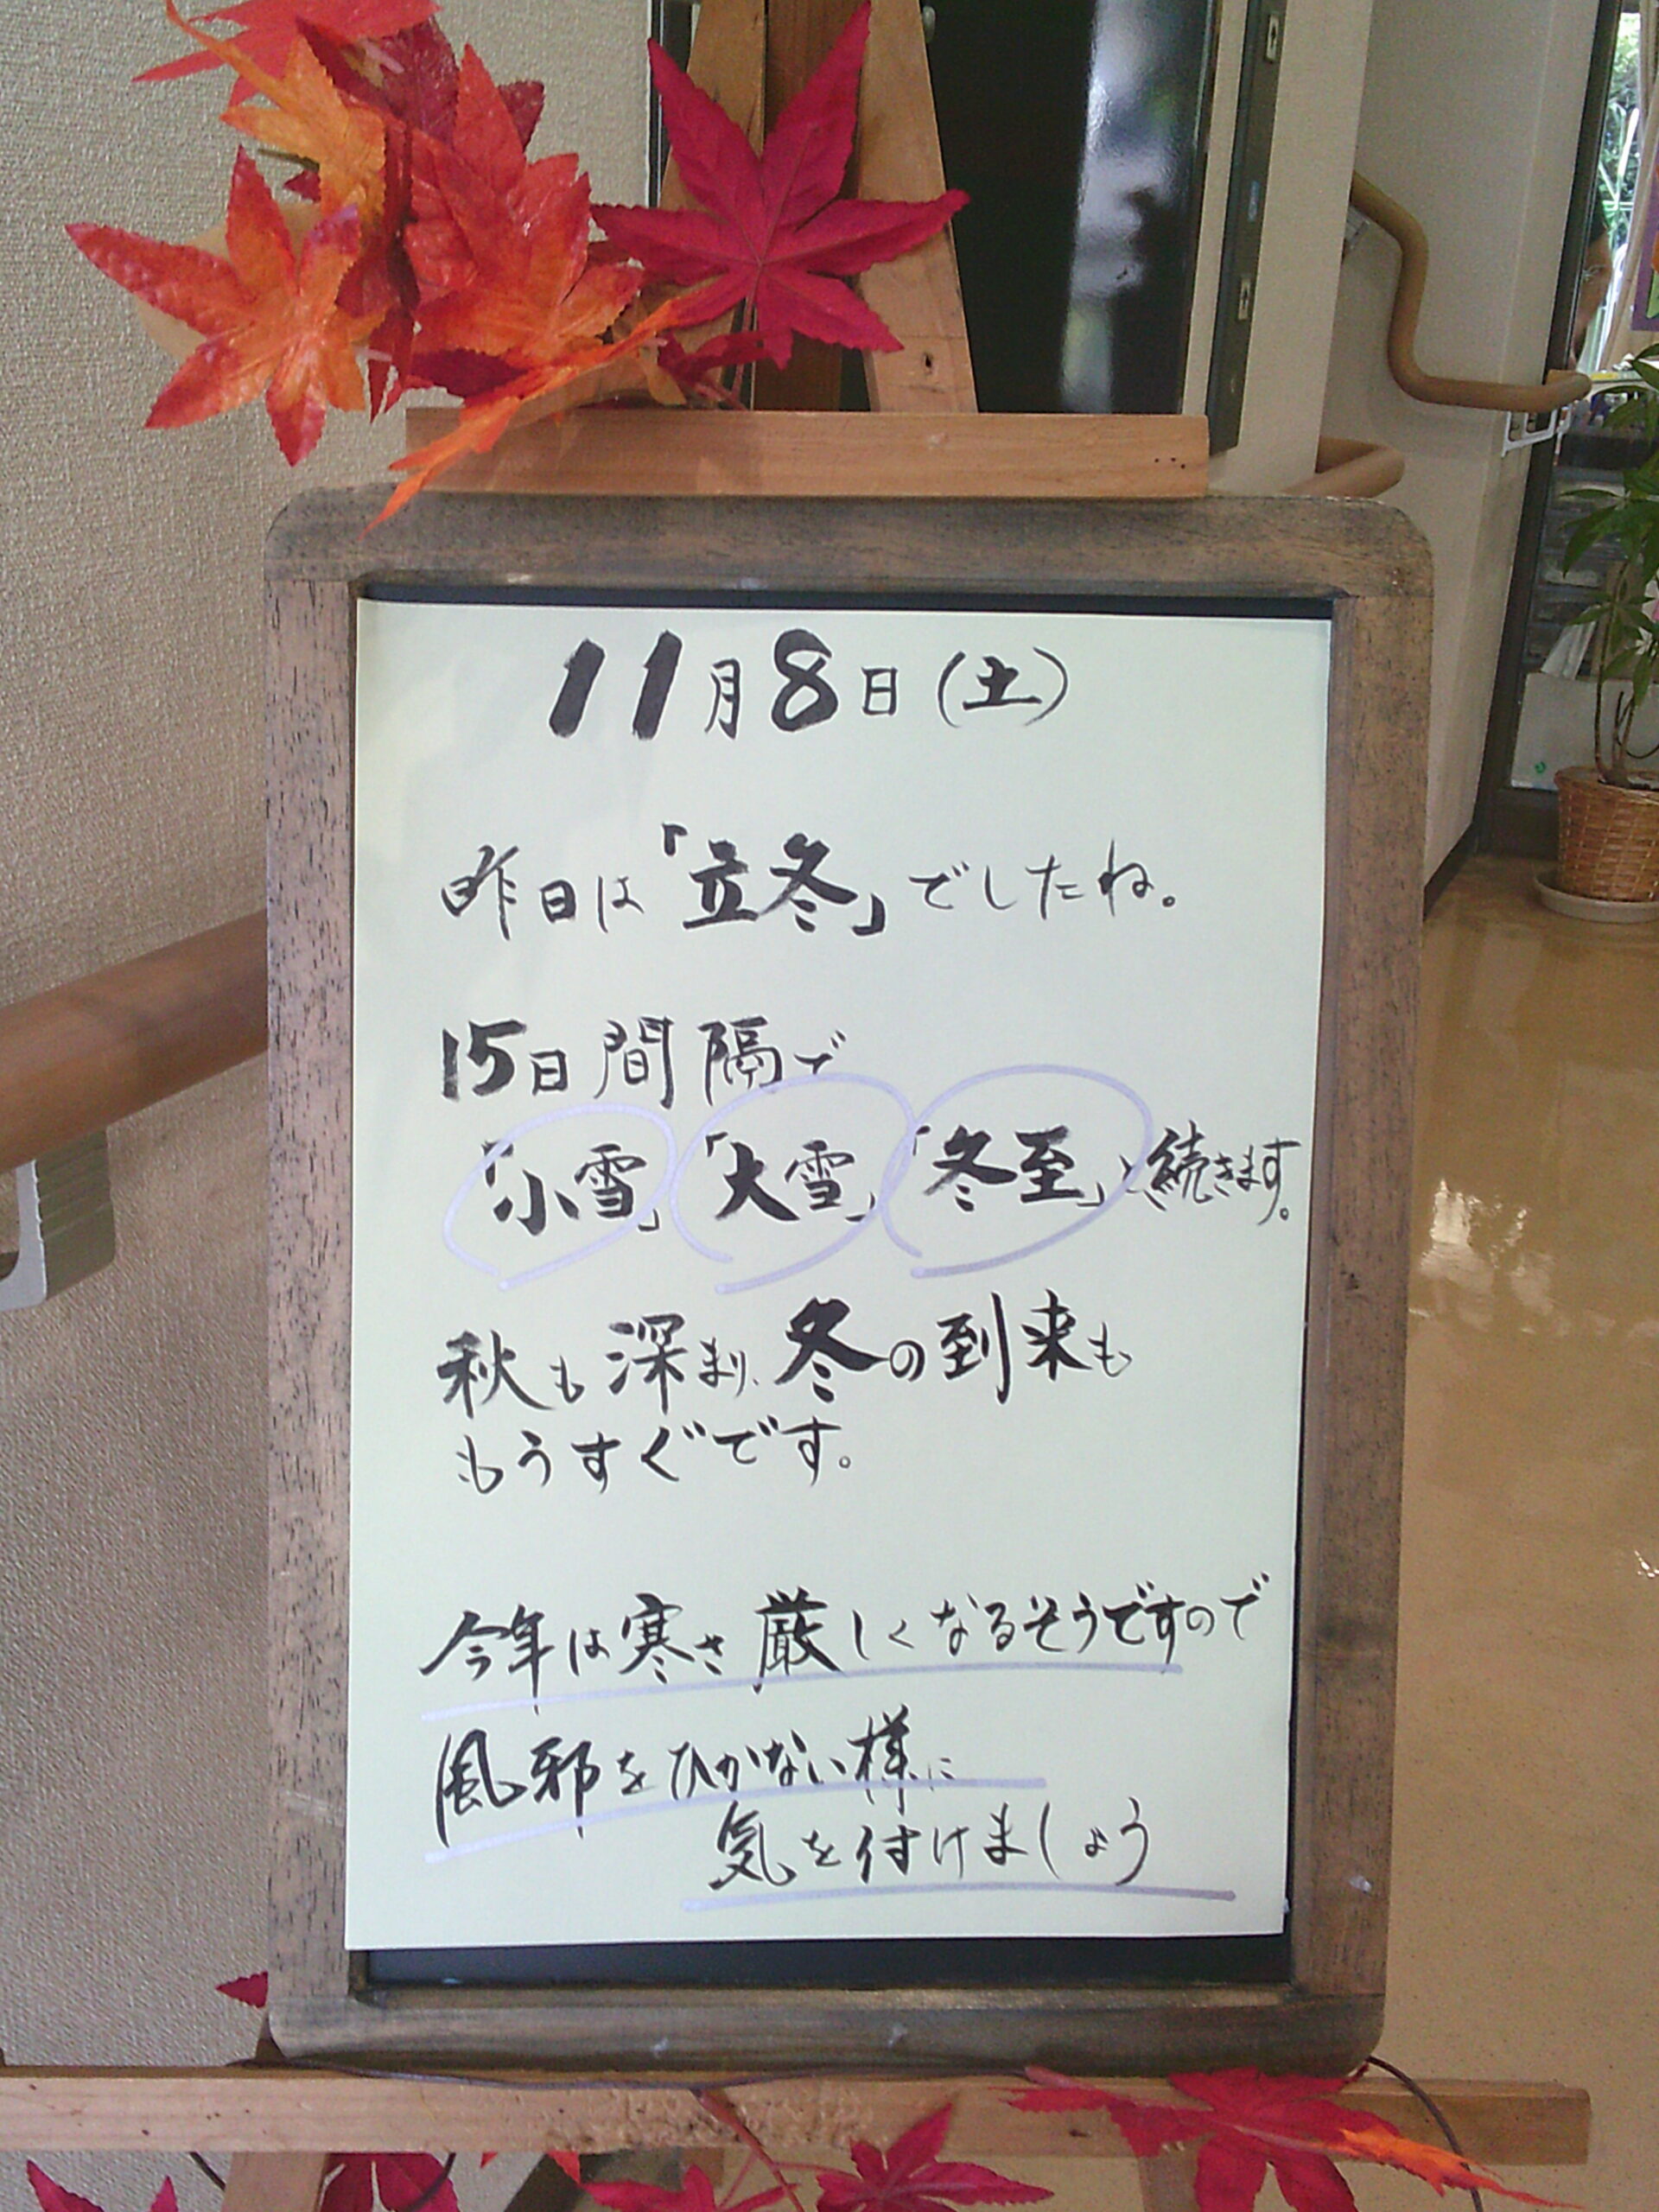 11月8日(土)
昨日は「立冬」でしたね。
15日間隔で
「小雪」「大雪」「冬至」と続きます。
秋も深まり、冬の到来も
もうすぐです。
今年は寒さ厳しくなるそうですので
風邪をひかない様に
気を付けましょう